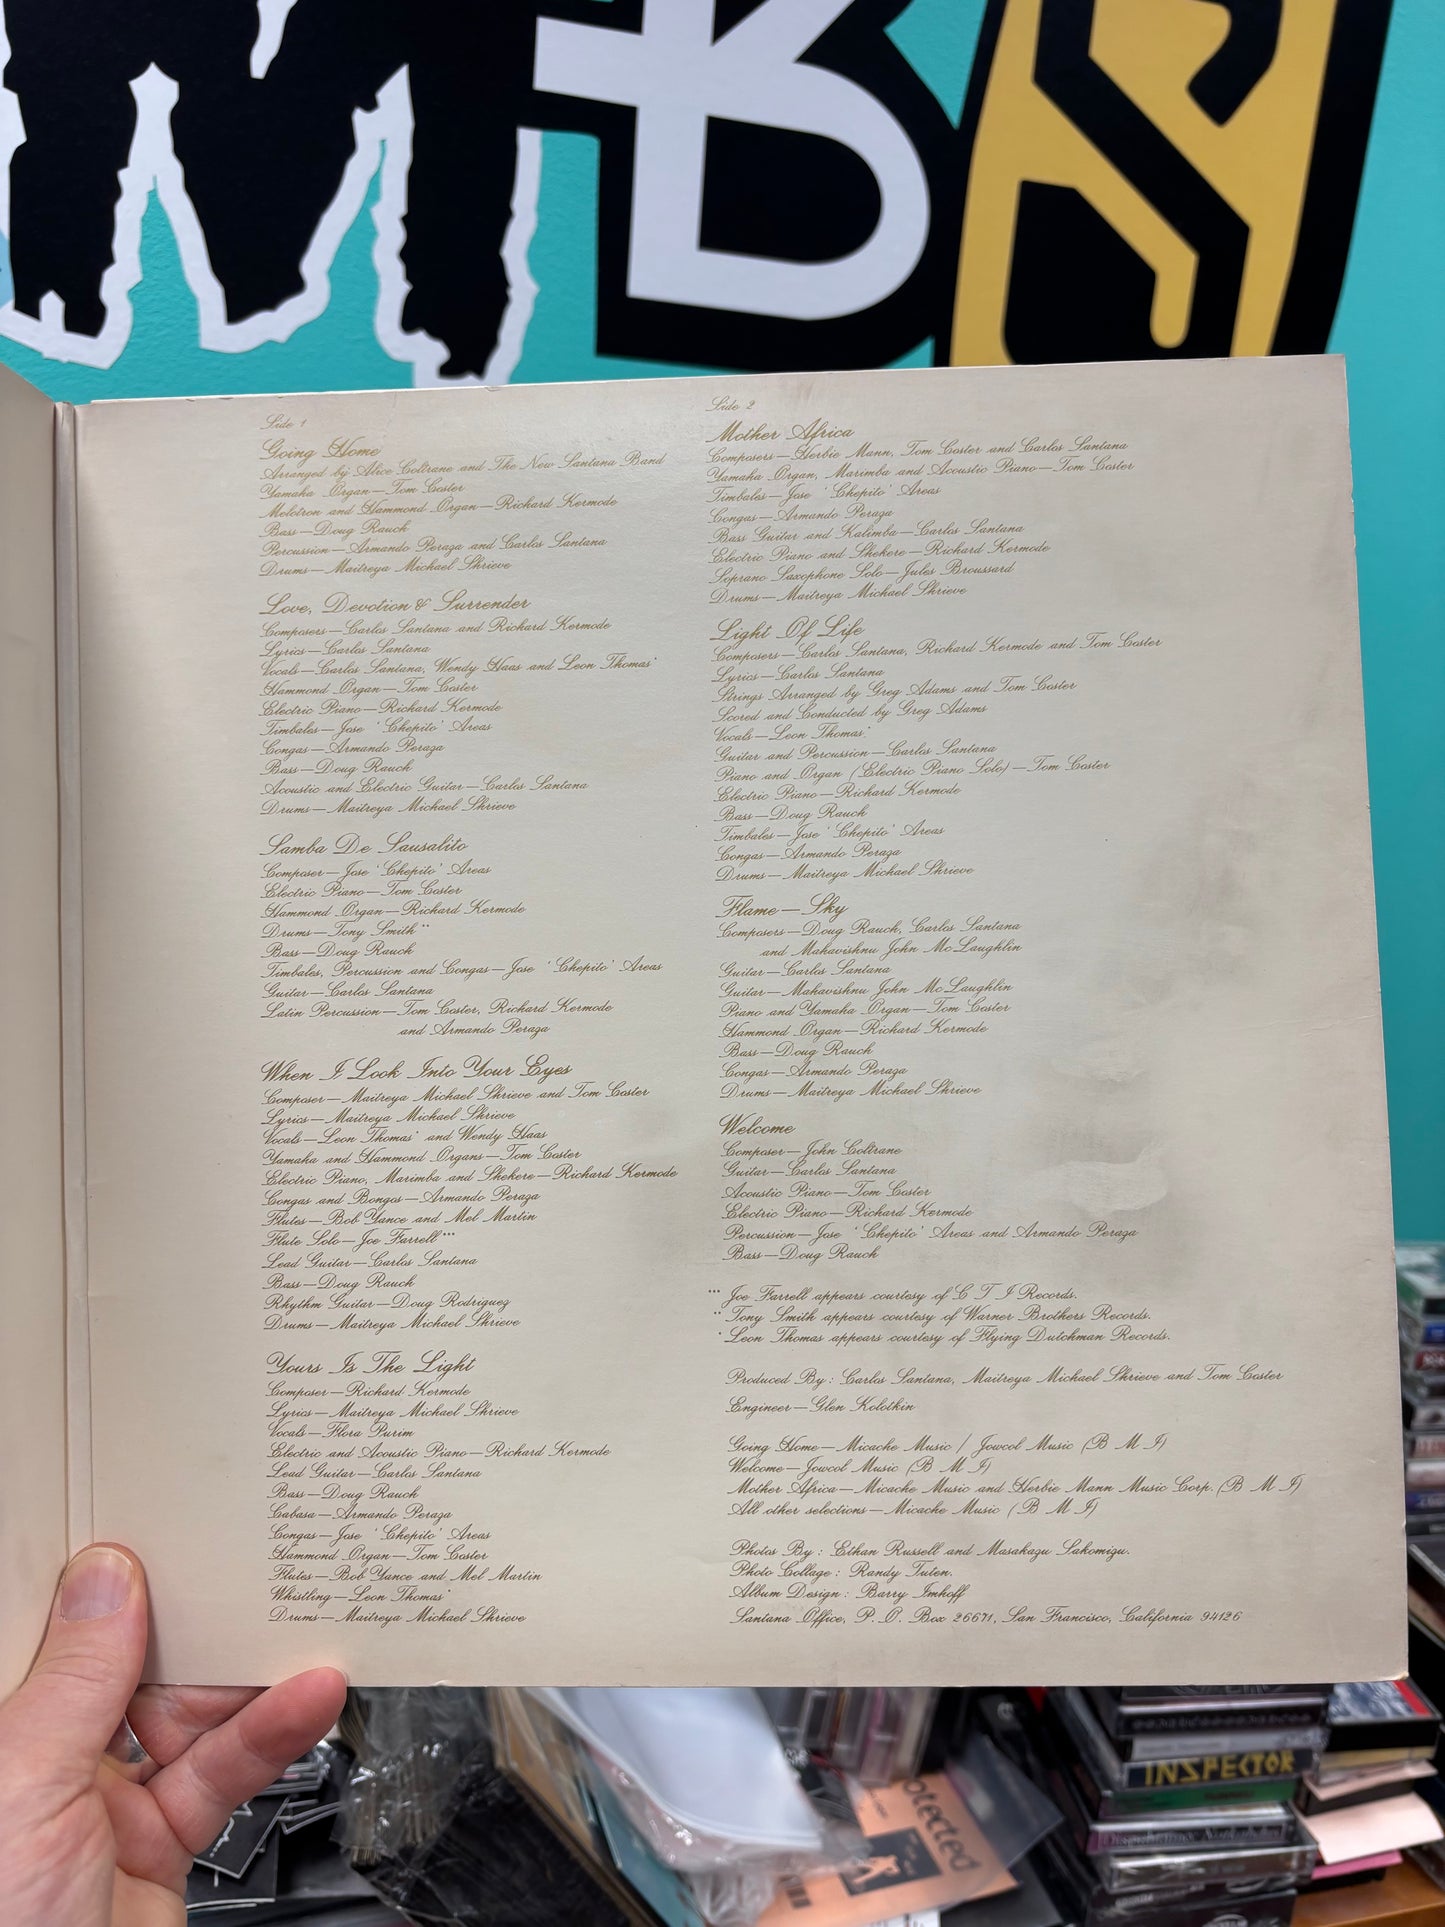 Side 1
Going Home
Arranged by Alice Coltrane and The New Santana Band
Yamaha Organ—Tom Coster
Melotron and Hammond Organ—Richard Kermode
Bass—Doug Rauch
Percussion—Armando Peraza and Carlos Santana
Drums—Maitreya Michael Shrieve
Love, Devotion & Surrender
Composers—Carlos Santana and Richard Kermode
Lyrics—Carlos Santana
Vocals—Carlos Santana, Wendy Haas and Leon Thomas*
Hammond Organ—Tom Coster
Electric Piano—Richard Kermode
Timbales—Jose 'Chepito' Areas
Congas—Armando Peraza
Bass—Doug Rauch
Acoustic and Electric Guitar—Carlos Santana
Drums—Maitreya Michael Shrieve
Samba De Sausalito
Composer—Jose 'Chepito' Areas
Electric Piano—Tom Coster
Hammond Organ—Richard Kermode
Drums—Tony Smith**
Bass—Doug Rauch
Timbales, Percussion and Congas—Jose 'Chepito' Areas
Guitar—Carlos Santana
Latin Percussion—Tom Coster, Richard Kermode
and Armando Peraza
When I Look Into Your Eyes
Composer—Maitreya Michael Shrieve and Tom Coster
Lyrics—Maitreya Michael Shrieve
Vocals—Leon Thomas* and Wendy Haas
Yamaha and Hammond Organs—Tom Coster
Electric Piano, Marimba and Shekere—Richard Kermode
Congas and Bongos—Armando Peraza
Flutes—Bob Yance and Mel Martin
Flute Solo—Joe Farrell***
Lead Guitar—Carlos Santana
Bass—Doug Rauch
Rhythm Guitar—Doug Rodriguez
Drums—Maitreya Michael Shrieve
Yours Is The Light
Composer—Richard Kermode
Lyrics—Maitreya Michael Shrieve
Vocals—Flora Purim
Electric and Acoustic Piano—Richard Kermode
Lead Guitar—Carlos Santana
Bass—Doug Rauch
Cabasa—Armando Peraza
Congas—Jose 'Chepito' Areas
Hammond Organ—Tom Coster
Flutes—Bob Yance and Mel Martin
Whistling—Leon Thomas*
Drums—Maitreya Michael Shrieve
Side 2
Mother Africa
Composers—Herbie Mann, Tom Coster and Carlos Santana
Yamaha Organ, Marimba and Acoustic Piano—Tom Coster
Timbales—Jose 'Chepito' Areas
Congas—Armando Peraza
Bass Guitar and Kalimba—Carlos Santana
Electric Piano and Shekere—Richard Kermode
Soprano Saxophone Solo—Jules Broussard
Drums—Maitreya Michael Shrieve
Light Of Life
Composers—Carlos Santana, Richard Kermode and Tom Coster
Lyrics—Carlos Santana
Strings Arranged by Greg Adams and Tom Coster
Scored and Conducted by Greg Adams
Vocals—Leon Thomas*
Guitar and Percussion—Carlos Santana
Piano and Organ (Electric Piano Solo)—Tom Coster
Electric Piano—Richard Kermode
Bass—Doug Rauch
Timbales—Jose 'Chepito' Areas
Congas—Armando Peraza
Drums—Maitreya Michael Shrieve
Flame—Sky
Composers—Doug Rauch, Carlos Santana
and Mahavishnu John McLaughlin
Guitar—Carlos Santana
Guitar—Mahavishnu John McLaughlin
Piano and Yamaha Organ—Tom Coster
Hammond Organ—Richard Kermode
Bass—Doug Rauch
Congas—Armando Peraza
Drums—Maitreya Michael Shrieve
Welcome
Composer—John Coltrane
Guitar—Carlos Santana
Acoustic Piano—Tom Coster
Electric Piano—Richard Kermode
Percussion—Jose 'Chepito' Areas and Armando Peraza
Bass—Doug Rauch
*** Joe Farrell appears courtesy of C T I Records.
** Tony Smith appears courtesy of Warner Brothers Records.
* Leon Thomas appears courtesy of Flying Dutchman Records.
Produced By: Carlos Santana, Maitreya Michael Shrieve and Tom Coster
Engineer—Glen Kolotkin
Going Home—Micache Music / Jowcol Music (B M I)
Welcome—Jowcol Music (B M I)
Mother Africa—Micache Music and Herbie Mann Music Corp. (B M I)
All other selections—Micache Music (B M I)
Photos By: Ethan Russell and Masakazu Sakomizu.
Photo Collage: Randy Tuten.
Album Design: Barry Imhoff
Santana Office, P. O. Box 26671, San Francisco, California 94126
INSPECTOR
otected